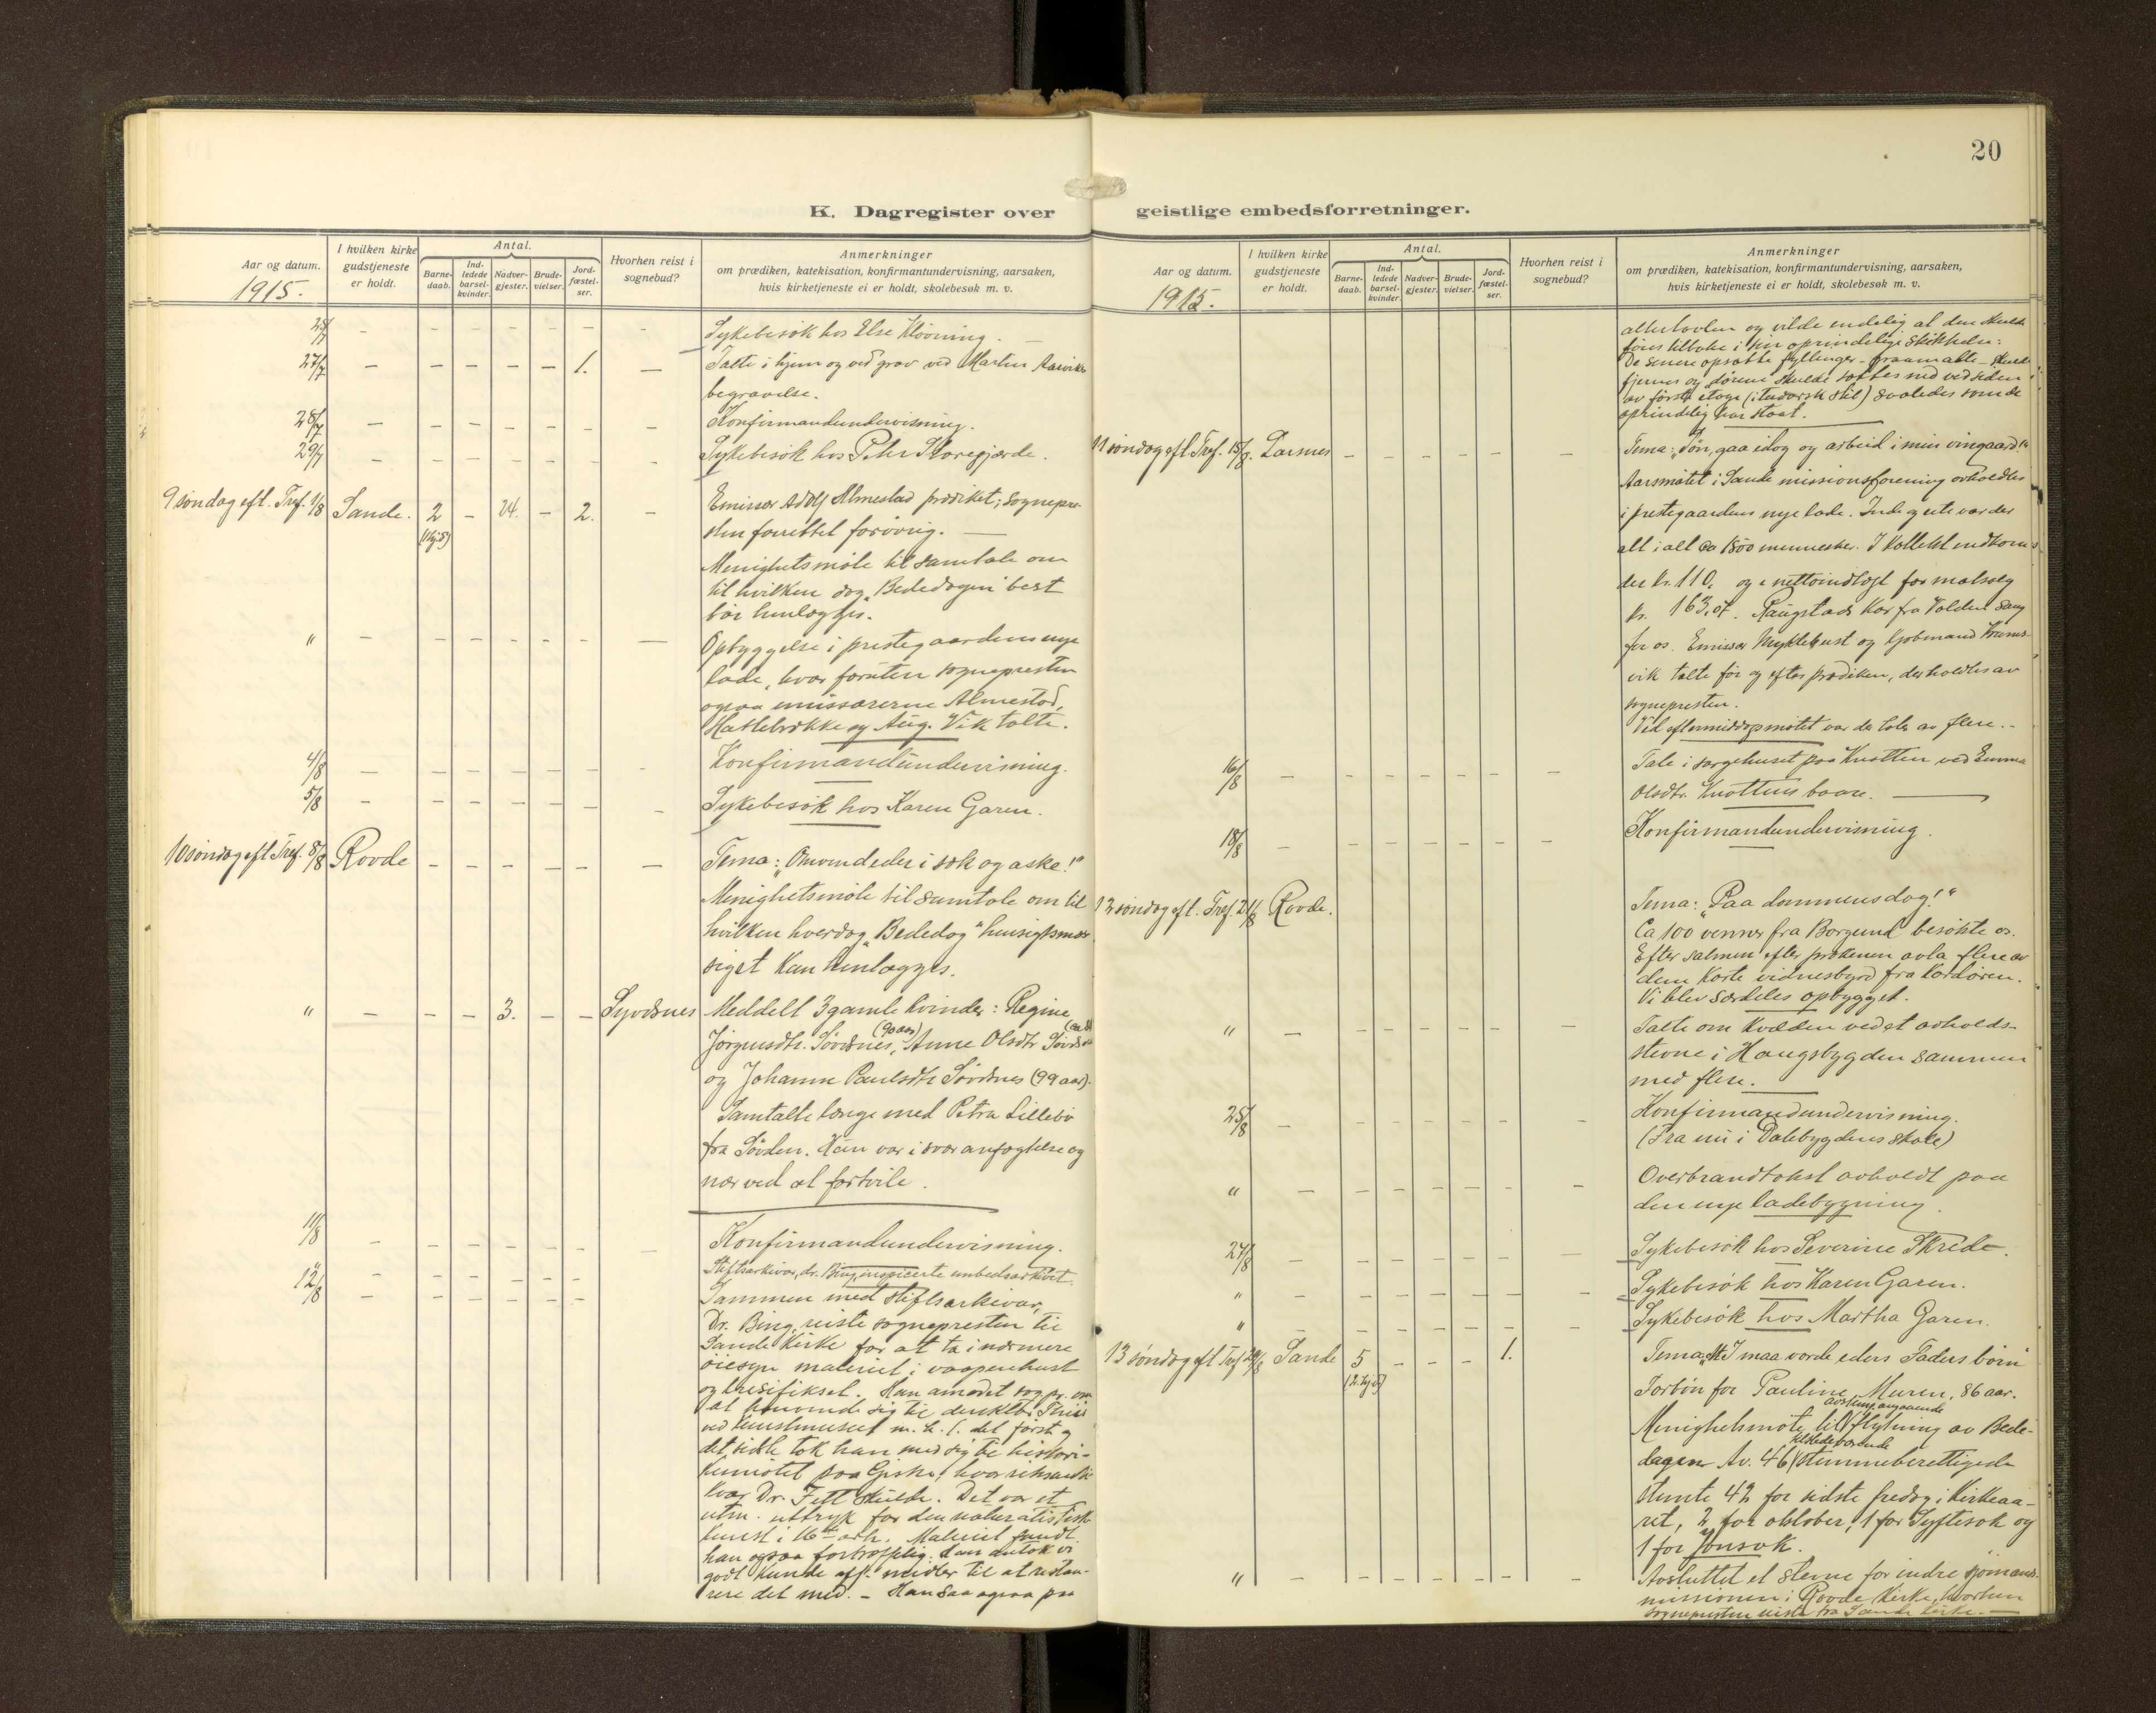 20
K. Dagregister over geistlige embedsforretninger.
Aar og datum.
1915.
I hvilken kirke
gudstjeneste
er holdt.
Antal.
Barne-
daab.
Ind-
ledede
barsel-
kvinder.
Nadver-
gjester.
Brude-
vielser.
Jord-
fæstel-
ser.
Hvorhen reist i
sognebud?
Anmerkninger
om prædiken, katekisation, konfirmantundervisning, aarsaken,
hvis kirketjeneste ei er holdt, skolebesøk m. v.
Sykebesøk hos Else
27/7 – – – – – 1. – Talte i hjem og ved grav ved Martin Aarviks
begravelse.
28/7 – – – – – – – Konfirmandundervisning.
29/7 – – – – – – – Sykebesøk hos Peter
9 søndag eft. Tref. 1/8 Sande. 2 – 24. – 2. – Emissær Adolf Almestad prædiket; sognepre-
sten forrettet forøvrig. –
Menighetsmøte til samtale om
til hvilken dag „Bededagen" best
bør henlægges.
" – – – – – – – Opbyggelse i prestegaardens nye
lade, hvor foruten sognepresten
ogsaa emissærerne Almestad,
og Aug. Vik talte.
4/8 – – – – – – – Konfirmandundervisning.
5/8 – – – – – – – Sykebesøk hos Karen Garen.
10 søndag eft Tref. 8/8 Rovde – – – – – – Tema: „Omvend eder i sæk og aske!"
Menighetsmøte til samtale om til
hvilken hverdag „Bededag" hensigtsmæs-
sigst kan henlægges.
" – – – 3. – – Syvdsnes Meddelt 3 gamle kvinder: Regine
Jørgensdtr. Søvdsnes, (90 aar) Anne Olsdtr
og Johanne Paulsdtr Søvdsnes (99 aar).
Samtalte længe med Petra Lillebø
fra Søvden. Hun var i svær anfægtelse og
nær ved at fortvile.
11/8 – – – – – – – Konfirmandundervisning.
" – – – – – – Stiftsarkivar, dr. Bing, inspicerte embedsarkivet.
12/8 – – – – – – Sammen med stiftsarkivar,
Dr. Bing, reiste sognepresten til
Sande kirke for at ta i nærmere
øiesyn maleriet i vaapenhuset
og krusifikset. Han anmodet sogpr. om
at henvende sig til direktør Thiis
ved kunstmuseet m. h. t. det første og
det sidste tok han med sig til histori-
kermøtet paa Giske, hvor riksanti-
kvar Dr. Fett skulde. Det var et
utm. uttryk for den naturalistiske
kunst i 16de aarh. Maleriet fandt
han ogsaa fortræffelig. Han antok vi
godt kunde off. midler til at restau-
rere det med. – Han saa ogsaa paa
Aar og datum.
1915.
I hvilken kirke
gudstjeneste
er holdt.
Antal.
Barne-
daab.
Ind-
ledede
barsel-
kvinder.
Nadver-
gjester.
Brude-
vielser.
Jord-
fæstel-
ser.
Hvorhen reist i
sognebud?
Anmerkninger
om prædiken, katekisation, konfirmantundervisning, aarsaken,
hvis kirketjeneste ei er holdt, skolebesøk m. v.
altertavlen og vilde endelig at den skulde
føres tilbake i sin oprindelige skikkelse:
De senere opsatte fyllinger – graamalte – skulde
fjernes og dørene skulde sættes ned ved siden
av første etage (i tudorsk stil) saaledes som de
oprindelig har staat.
11 søndag eft. Tref. 15/8. Larsnes – – – – – – Tema: „Søn, gaa idag og arbeid i min vingaard!"
Aarsmøtet i Sande missionsforening avholdtes
i prestegaardens nye lade. Inde og ute var der
alt i alt ca 1500 mennesker. I kollekt indkom
der kr. 110, og i nettoindtægt for matsalg
kr. 163,07. Raugstads kor fra Volden sang
for os. Emissær Myklebust og kjøbmand
vik talte før og efter prædiken, der holdtes av
sognepresten.
Ved eftermiddagsmøtet var der tale av flere. –
16/8 – – – – – – – Tale i sørgehuset paa Knotten ved Emma
Olsdtr. Knottens baare.
18/8 – – – – – – – Konfirmandundervisning.
12 søndag eft. Tref. Rovde. Tema: „Paa dommens dag!"
Ca 100 venner fra Borgund besøkte os.
Efter salmen efter prækenen avla flere av
dem korte vidnesbyrd fra kordøren.
Vi blev særdeles opbygget.
" – – – – – – – Talte om kvælden ved et avholds-
stevne i Haugsbygden sammen
med flere.
25/8 – – – – – – – Konfirmandundervisning.
(Fra nu i Dalebygdens skole)
" – – – – – – – Overbrandtakst avholdt paa
den nye ladebygning.
27/8 – – – – – – – Sykebesøk hos Severine Skrede.
" – – – – – – – Sykebesøk hos Karen Garen.
" – – – – – – – Sykebesøk hos Martha Garen.
13 søndag eft Tref 29/8 Sande 5 – – – 1. Tema: „At I maa vorde eders Faders børn"
Forbøn for Pauline Muren, 86 aar.
Menighetsmøte til avstemn. angaaende flytning av Bede-
dagen. Av 46 tilstedeværende stemmeberettigede
stemte 42 for sidste fredag i kirkeaa-
ret, 2 for oktober, 1 for Syftesok og
1 for Jonsok.
" – – – – – – – Avsluttet et stevne for indre sjømands-
missionen i Rovde kirke, hvorhen
sognepresten reiste fra Sande kirke. –